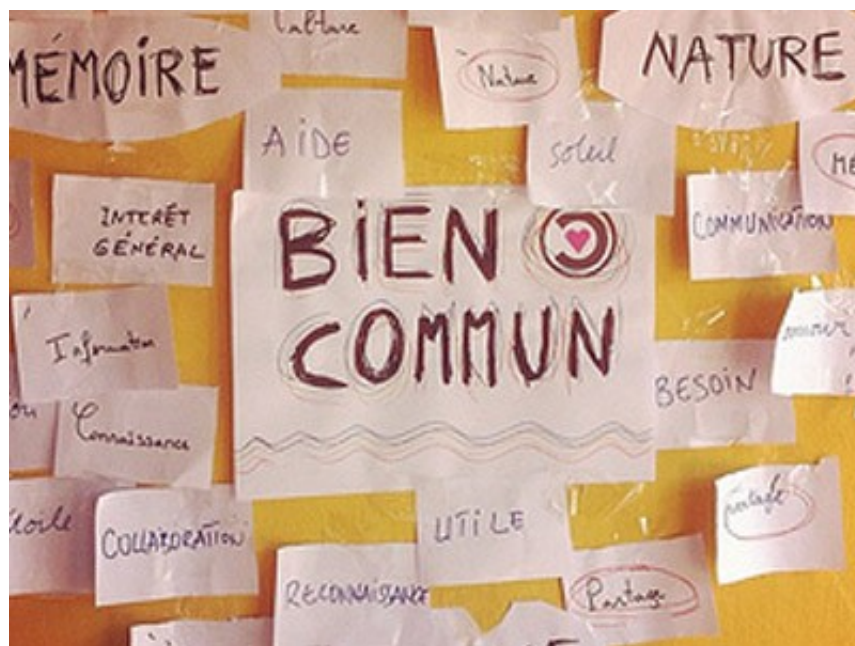 MÉMOIRE
Culture
Nature
NATURE
AIDE
soleil
INTERÊT
GÉNÉRAL
BIEN
COMMUN
COMMUNICATION
Information
BESOIN
Connaissance
COLLABORATION
UTILE
partage
RECONNAISSANCE
Partage